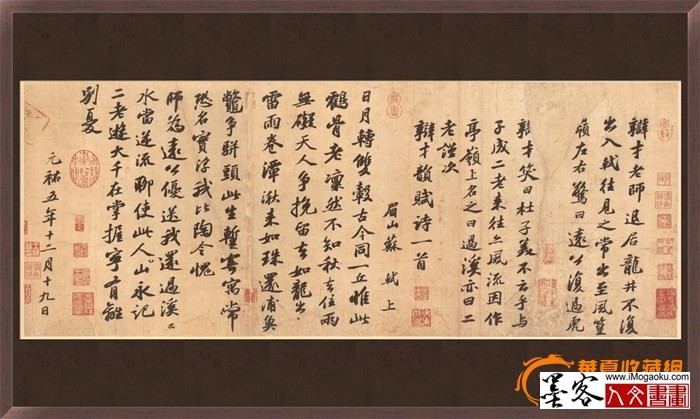 辯才老師退居龍井不復
出入軾往見之常出至風篁
嶺左右驚曰遠公復過虎
辯才笑曰杜子美不云乎與
子成二老來往亦風流因作
亭嶺上名之曰過溪亦曰二
老謹次
辯才韻賦詩一首
眉山蘇 軾上
日月轉雙轂古今同一丘惟此
鶴骨老凜然不知秋去住兩
無礙天人爭挽留去如龍出
雷雨卷潭湫來如珠還浦魚
鱉爭駢頭此生暫寄寓常
恐名實浮我比陶令愧
師為遠公優送我還過溪〻
水當逆流聊使此人山永記
二老遊大千在掌握寧有離
別憂
元祐五年十二月十九日
華夏收藏網
墨客 www.iMogaoku.com
人文書畫